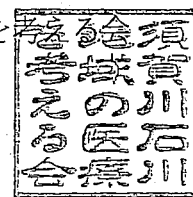 須賀川石川
地域の医療
を考える会